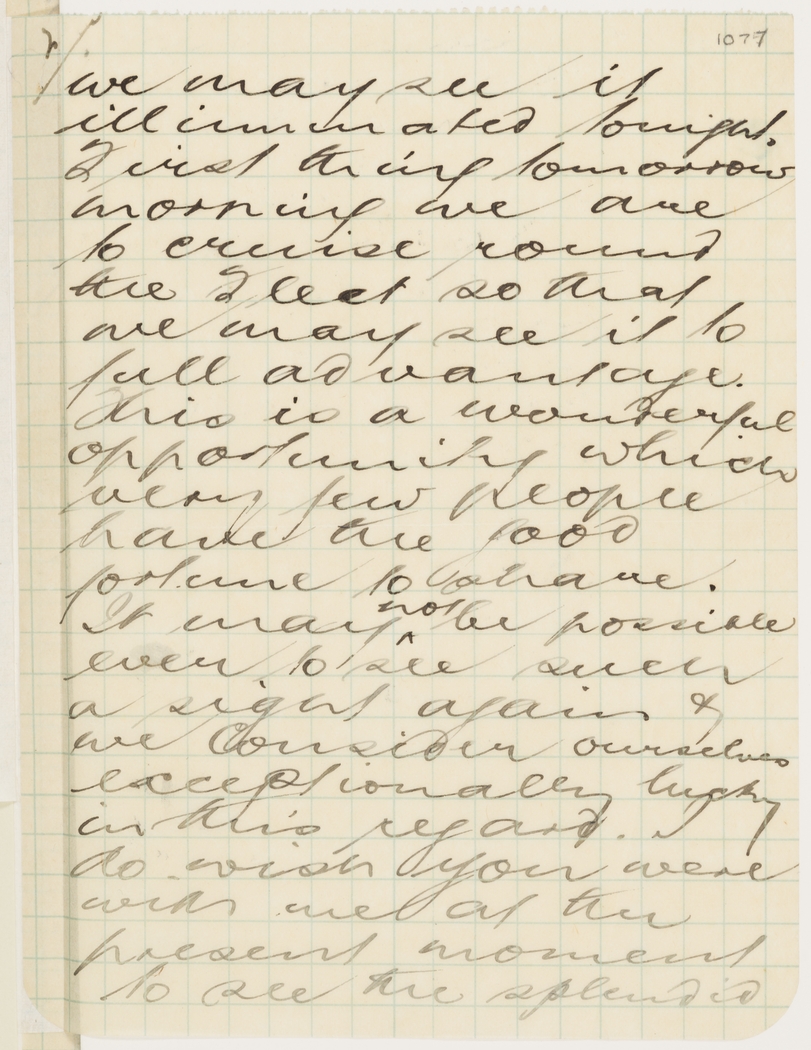 2/.
1077
we may see it
illuminated tonight.
First thing tomorrow
morning we are
to cruise round
the Fleet so that
we may see it to
full advantage.
This is a wonderful
opportunity which
very few people
have the good
fortune to have.
not
It may ^ be possible
ever to see such
a sight again &
we consider ourselves
exceptionally lucky
in this regard. I
do wish you were
with me at the
present moment
to see the splendid